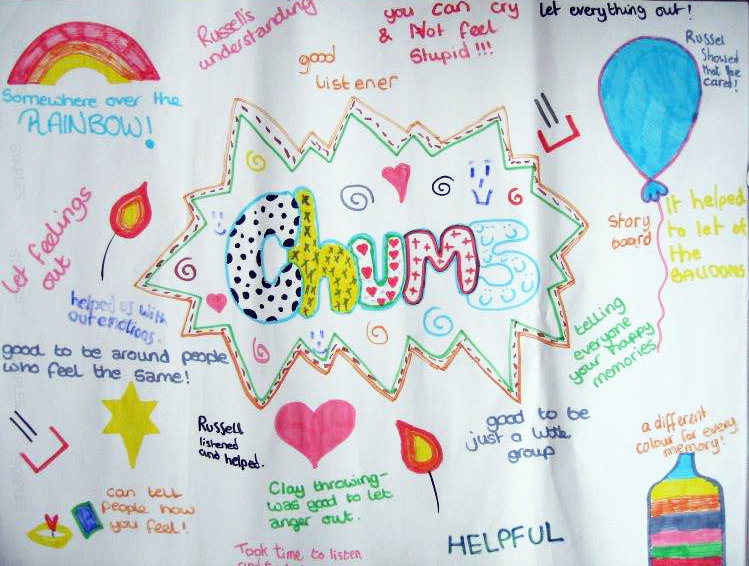 Russell's
understanding
you can cry
& Not feel
Stupid!!!
let everything out!
good
listener
Russel
Showed
that he
cared!
Somewhere over the
RAINBOW!
let feelings
out
Chums
Story
board
It helped
to let of
the
BALLOONS
helped us with
our emotions.
telling
everyone
your happy
memories
good to be around people
who feel the same!
Russell
listened
and helped.
good to be
just a little
group
a different
colour for every
memory!
can tell
people how
you feel!
Clay throwing-
was good to let
anger out.
HELPFUL
Took time to listen